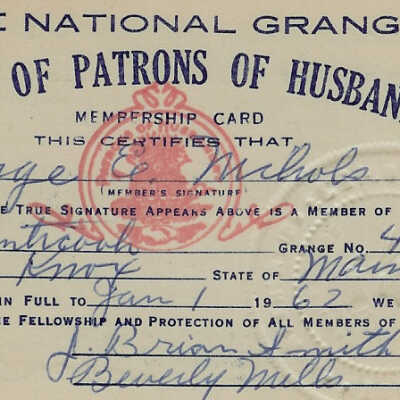 E NATIONAL GRANG
OF PATRONS OF HUSBAN
MEMBERSHIP CARD
THIS CERTIFIES THAT
ge E. Nichols
(MEMBER'S SIGNATURE)
E TRUE SIGNATURE APPEARS ABOVE IS A MEMBER OF
nticook GRANGE NO. 4
Knox STATE OF Main
IN FULL TO Jan 1 1962 WE
E FELLOWSHIP AND PROTECTION OF ALL MEMBERS OF
J. Brian Smith
Beverly Mills